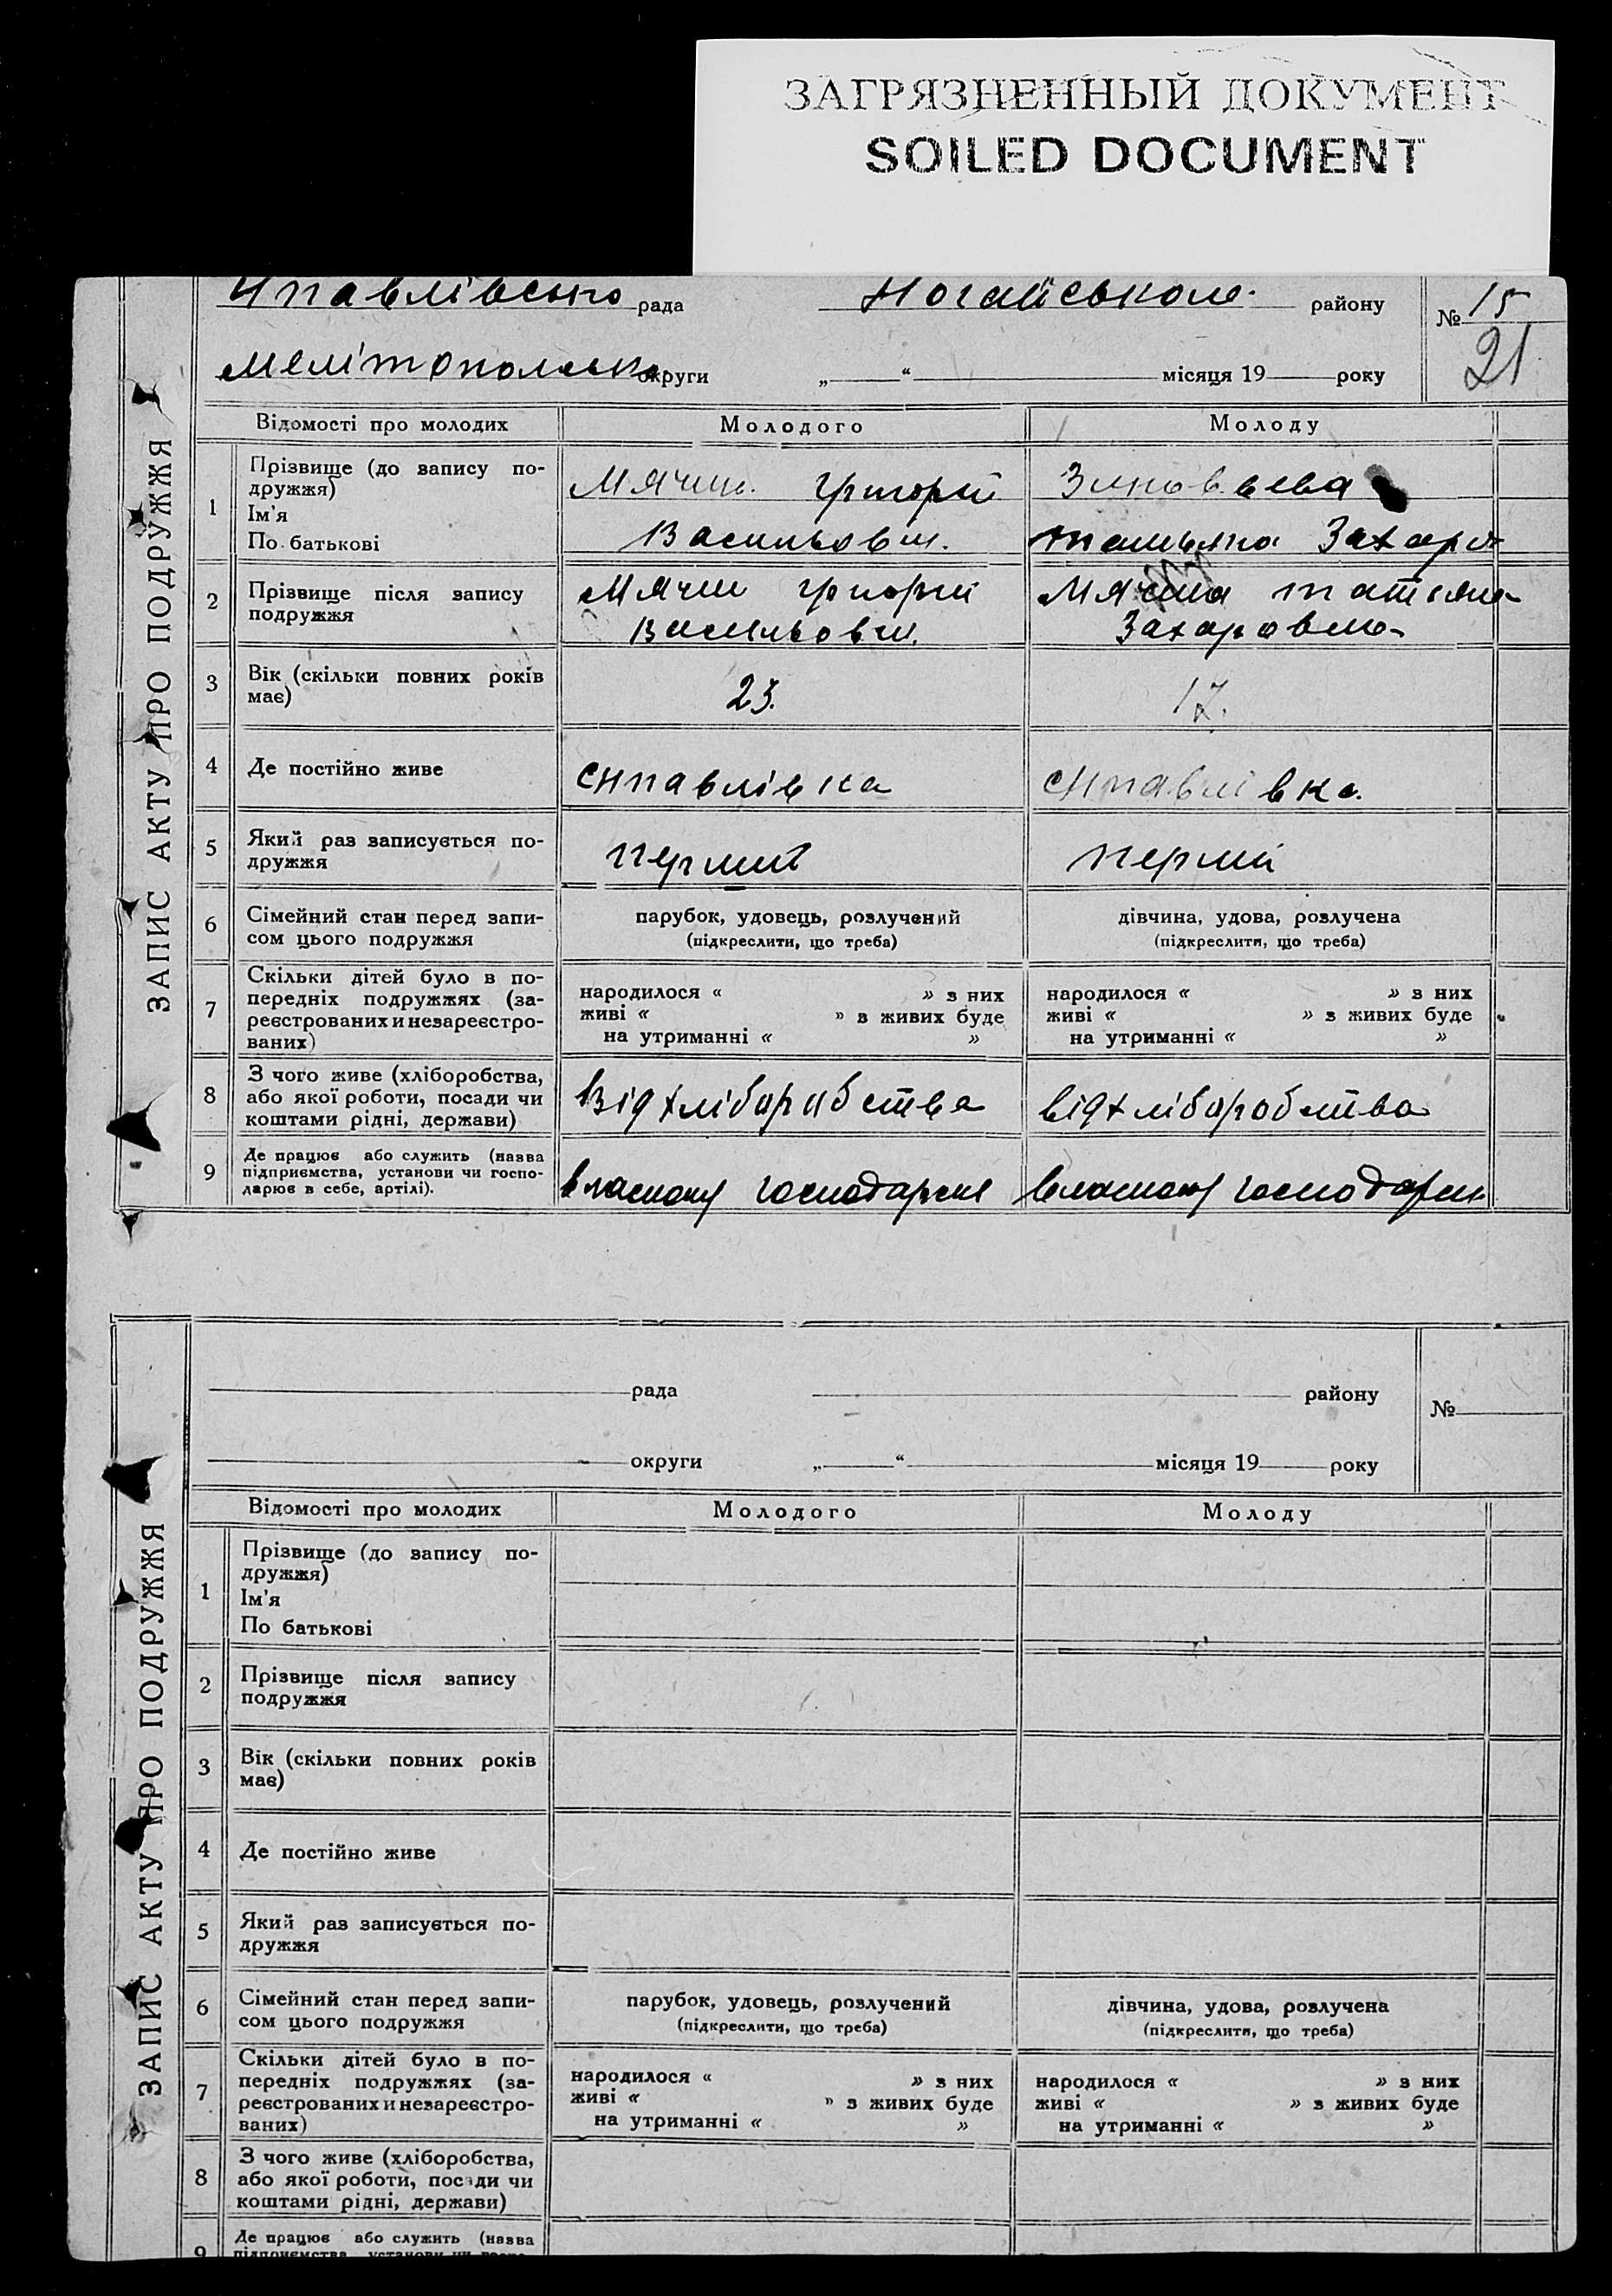 ЗАГРЯЗНЕННЫЙ ДОКУМЕНТ
SOILED DOCUMENT
Нпавлівська рада Ногайського району № 15
21
Мелітопольська округи „ “ місяця 19 року
ЗАПИС АКТУ ПРО ПОДРУЖЖЯ
Відомості про молодих Молодого Молоду
1 Прізвище (до запису по-
дружжя)
Ім'я
По батькові
Мячин Григорій
Васильович
Зиновьева
Татьяна Захарів
2 Прізвище після запису
подружжя
Мячин Григорій
Васильович
Мячина Татіяна
Захаровна
3 Вік (скільки повних років
має)
23. 17.
4 Де постійно живе СНпавлівка СНпавлівка
5 Який раз записується по-
дружжя
перший перший
6 Сімейний стан перед запи-
сом цього подружжя
парубок, удовець, розлучений
(підкреслити, що треба)
дівчина, удова, розлучена
(підкреслити, що треба)
7 Скільки дітей було в по-
передніх подружжях (за-
реєстрованих и незареєстро-
ваних)
народилося « » з них
живі « » з живих буде
на утриманні « »
народилося « » з них
живі « » з живих буде
на утриманні « »
8 З чого живе (хліборобства,
або якої роботи, посади чи
коштами рідні, держави)
від хліборобства від хліборобства
9 Де працює або служить (назва
підприємства, установи чи госпо-
дарює в себе, артілі).
власному господарстві власному господарстві
рада району №
округи „ “ місяця 19 року
ЗАПИС АКТУ ПРО ПОДРУЖЖЯ
Відомості про молодих Молодого Молоду
1 Прізвище (до запису по-
дружжя)
Ім'я
По батькові
2 Прізвище після запису
подружжя
3 Вік (скільки повних років
має)
4 Де постійно живе
5 Який раз записується по-
дружжя
6 Сімейний стан перед запи-
сом цього подружжя
парубок, удовець, розлучений
(підкреслити, що треба)
дівчина, удова, розлучена
(підкреслити, що треба)
7 Скільки дітей було в по-
передніх подружжях (за-
реєстрованих и незареєстро-
ваних)
народилося « » з них
живі « » з живих буде
на утриманні « »
народилося « » з них
живі « » з живих буде
на утриманні « »
8 З чого живе (хліборобства,
або якої роботи, посади чи
коштами рідні, держави)
9 Де працює або служить (назва
підприємства, установи чи госпо-